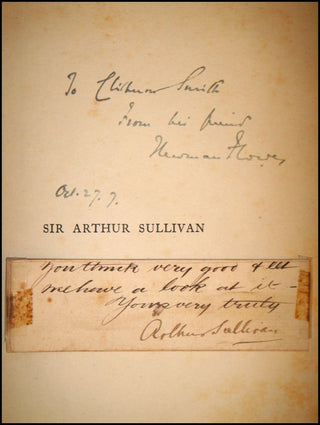 To Clishnow Smith
From his friend
Newman Flower
Oct. 27. 7.
SIR ARTHUR SULLIVAN
you think very good & let
me have a look at it -
Yours very truly
Arthur Sullivan